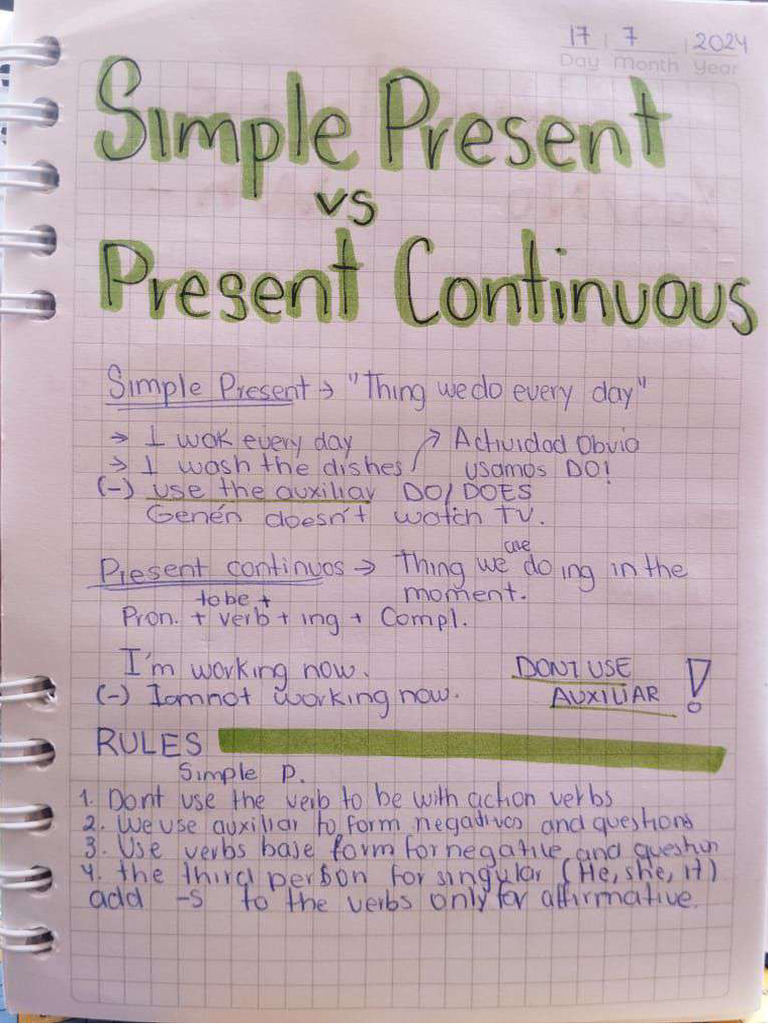 17 7 2024
Day Month Year
Simple Present
vs
Present Continuous
Simple Present → "Thing we do every day"
→ I wok every day
→ I wash the dishes ↗ Actividad Obvia
usamos DO!
(-) use the auxiliar DO/DOES
Genén doesn't watch TV.
Present continuos → Thing we are do ing in the
moment.
to be +
Pron. + verb + ing + Compl.
I'm working now.
(-) I am not working now.
DONT USE
AUXILIAR !
RULES
Simple P.
1. Dont use the verb to be with action verbs
2. We use auxiliar to form negatives and questions
3. Use verbs base form for negative and question
4. the third person for singular (He, she, it)
add -s to the verbs only for affirmative.